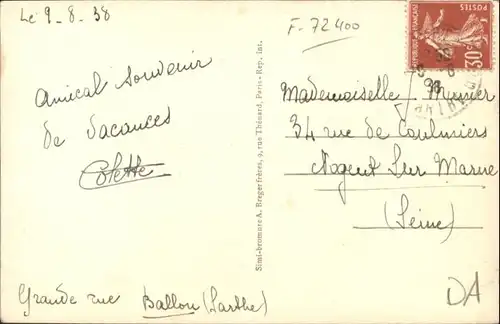 Le 9-8-38
F-72400
Amical souvenir
de vacances
Colette
Simi-bromure A. Breger frères, 9, rue Thénard, Paris - Rep. int.
POSTES
RÉPUBLIQUE FRANÇAISE
30c
Mademoiselle
34 rue de Coulmiers
Nogent Sur Marne
(Seine)
Grande rue Ballon (Sarthe)
DA